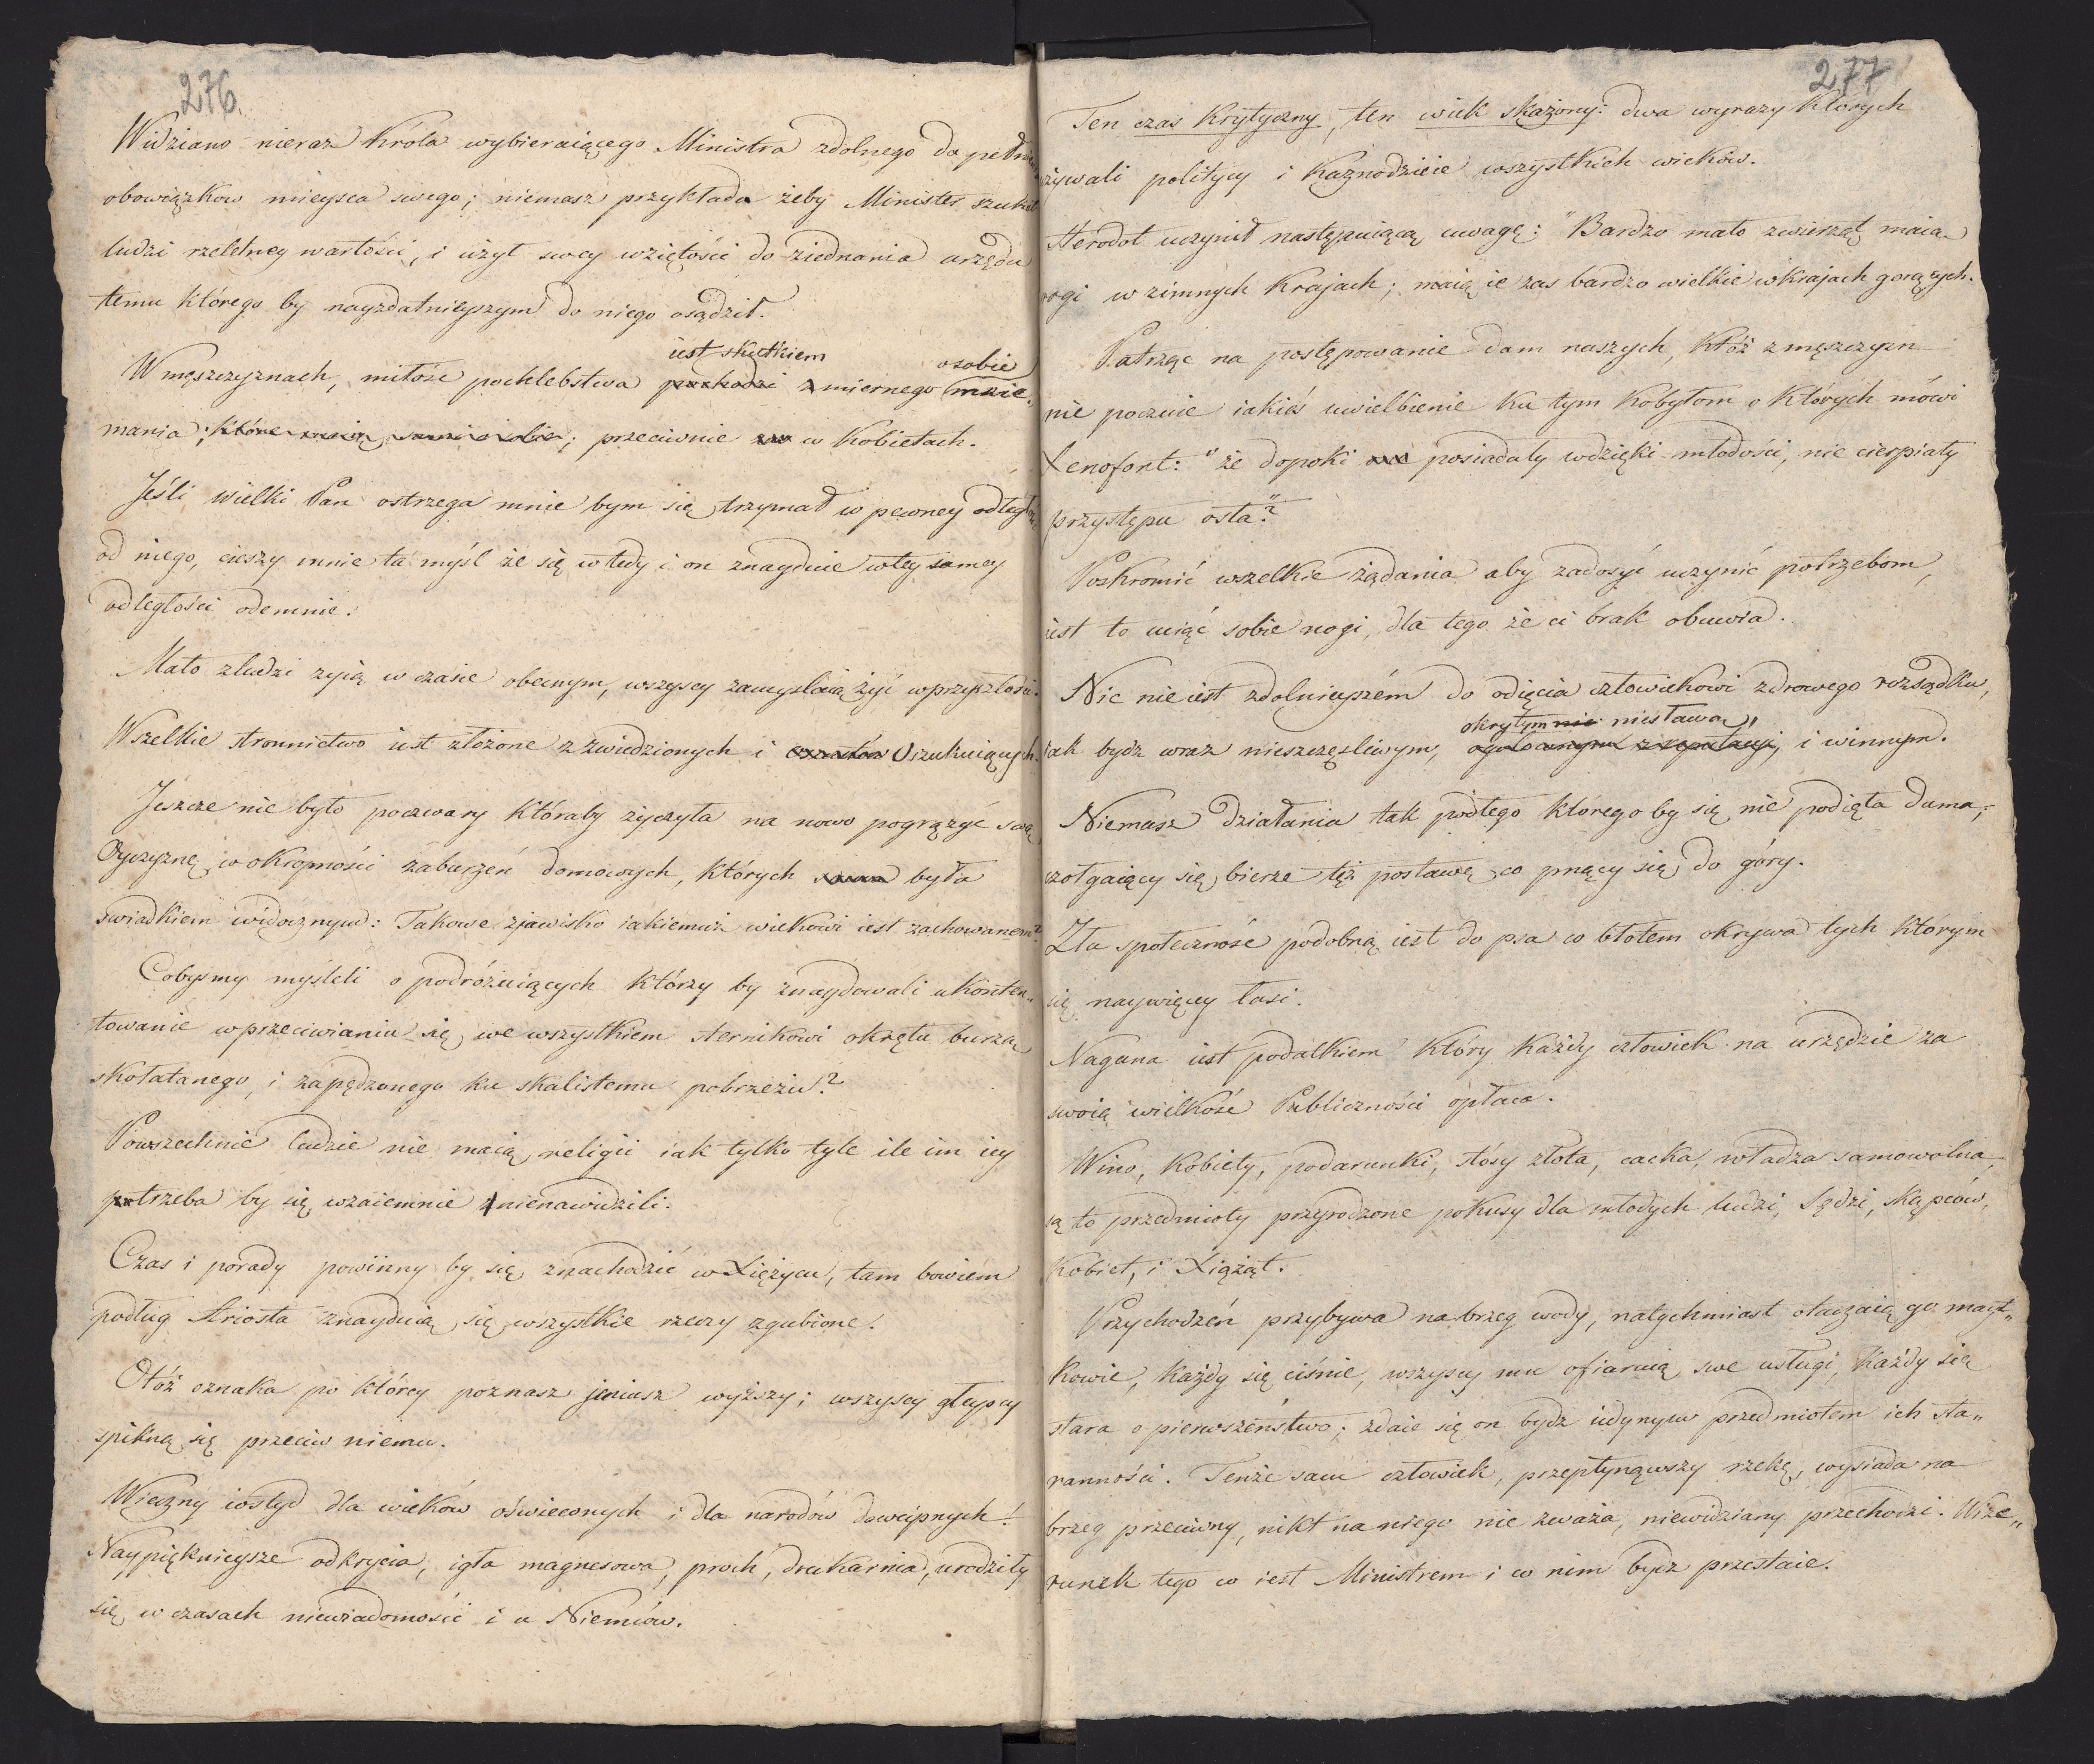 276.
Widziano nieraz Króla wybieraiącego Ministra zdolnego do pełn
obowiązkow mieysca swego; niemasz przykładu żeby Minister szukał
ludzi rzetelney wartości, i użył swey wziętości do ziednania urzędu
temu którego by nayzdatnieyszym do niego osądził.
iest skutkiem osobie
W męszczyznach, miłość pochlebstwa pochodzi z miernego mnie„
mania; które maią sami o sobie; przeciwnie w Kobietach.
Jeśli wielki Pan ostrzega mnie bym się trzymał w pewney odległ
od niego, cieszy mnie ta myśl że się wtedy i on znaydzie w tey samey
odległości odemnie.
Mało z ludzi żyią w czasie obecnym, wszyscy zamyslaią żyć w przyszłości.
Wszelkie stronnictwo iest złożone z zwiedzionych i Oszukuiących.
Jeszcze nie było poczwary któraby życzyła na nowo pogrążyć swą
Oyczyznę w okropności zaburzeń domowych, których była
swiadkiem widocznym: Takowe zjawisko iakiemuż wiekowi iest zachowanem?
Cobysmy myśleli o podróżuiących którzy by znaydowali ukonten„
towanie w przeciwianiu się we wszystkiem sternikowi okrętu burzą
skołatanego, i zapędzonego ku skalistemu pobrzeżu?
Powszechnie ludzie nie maią religii iak tylko tyle ile im iey
potrzeba by się wzaiemnie znienawidzili.
Czas i porady powinny by się znachodzić w Xiężycu, tam bowiem
podług Ariosta znayduią się wszystkie rzeczy zgubione.
Otóż oznaka po którey poznasz jeniusz wyższy; wszyscy głupcy
spikną się przeciw niemu.
Wieczny wstyd dla wieków oświeconych i dla narodów dowcipnych!
Naypięknieysze odkrycia, igła magnesowa, proch, drukarnia, urodziły
się w czasach niewiadomości i u Niemców.
277
Ten czas Krytyczny, ten wiek skażony: dwa wyrazy których
używali politycy i Kaznodzieie wszystkich wieków.
Herodot uczynił następuiącą uwagę: "Bardzo mało zwierząt maią
rogi w zimnych Krajach; maią ie zas bardzo wielkie w krajach gorących.
Patrząc na postępowanie dam naszych, Któż z męszczyzn
nie poczuie iakieś uwielbienie ku tym Kobyłom o Których mówi
Xenofont: "że dopoki one posiadały wdzięki młodości, nie cierpiały
przystępu osła?"
Poskromić wszelkie żądania aby zadosyć uczynić potrzebom,
iest to uciąć sobie nogi, dla tego że ci brak obuwia.
Nic nie iest zdolnieyszém do odięcia człowiekowi zdrowego rozsądku,
okrytym nie niesławą,
iak bydz wraz nieszczęsliwym, ogołoconym z reputacyi, i winnym.
Niemasz działania tak podłego którego by się nie podięła duma;
czołgaiący się bierze tęż postawę co pnący się do góry.
Zła społeczność podobną iest do psa co błotem okrywa tych którym
się naywięcey łasi.
Nagana iest podatkiem który każdy człowiek na urzędzie za
swoią wielkość Publiczności opłaca.
Wino, kobiety, podarunki, stósy złota, cacka, władza samowolna,
są to przedmioty przyrodzone pokusy dla młodych ludzi, Sędzi, skąpców,
Kobiet, i Xiążąt.
Przychodzeń przybywa na brzeg wody, natychmiast otaczaią go mayt„
kowie, każdy się ciśnie, wszyscy mu ofiaruią swe usługi, każdy się
stara o pierwszeństwo; zdaie się on bydz iedynym przedmiotem ich sta„
ranności. Tenże sam człowiek, przepłynąwszy rzekę, wysiada na
brzeg przeciwny, nikt na niego nie zważa, niewidziany przechodzi. Wize„
runek tego co iest Ministrem i co nim bydz przestaie.